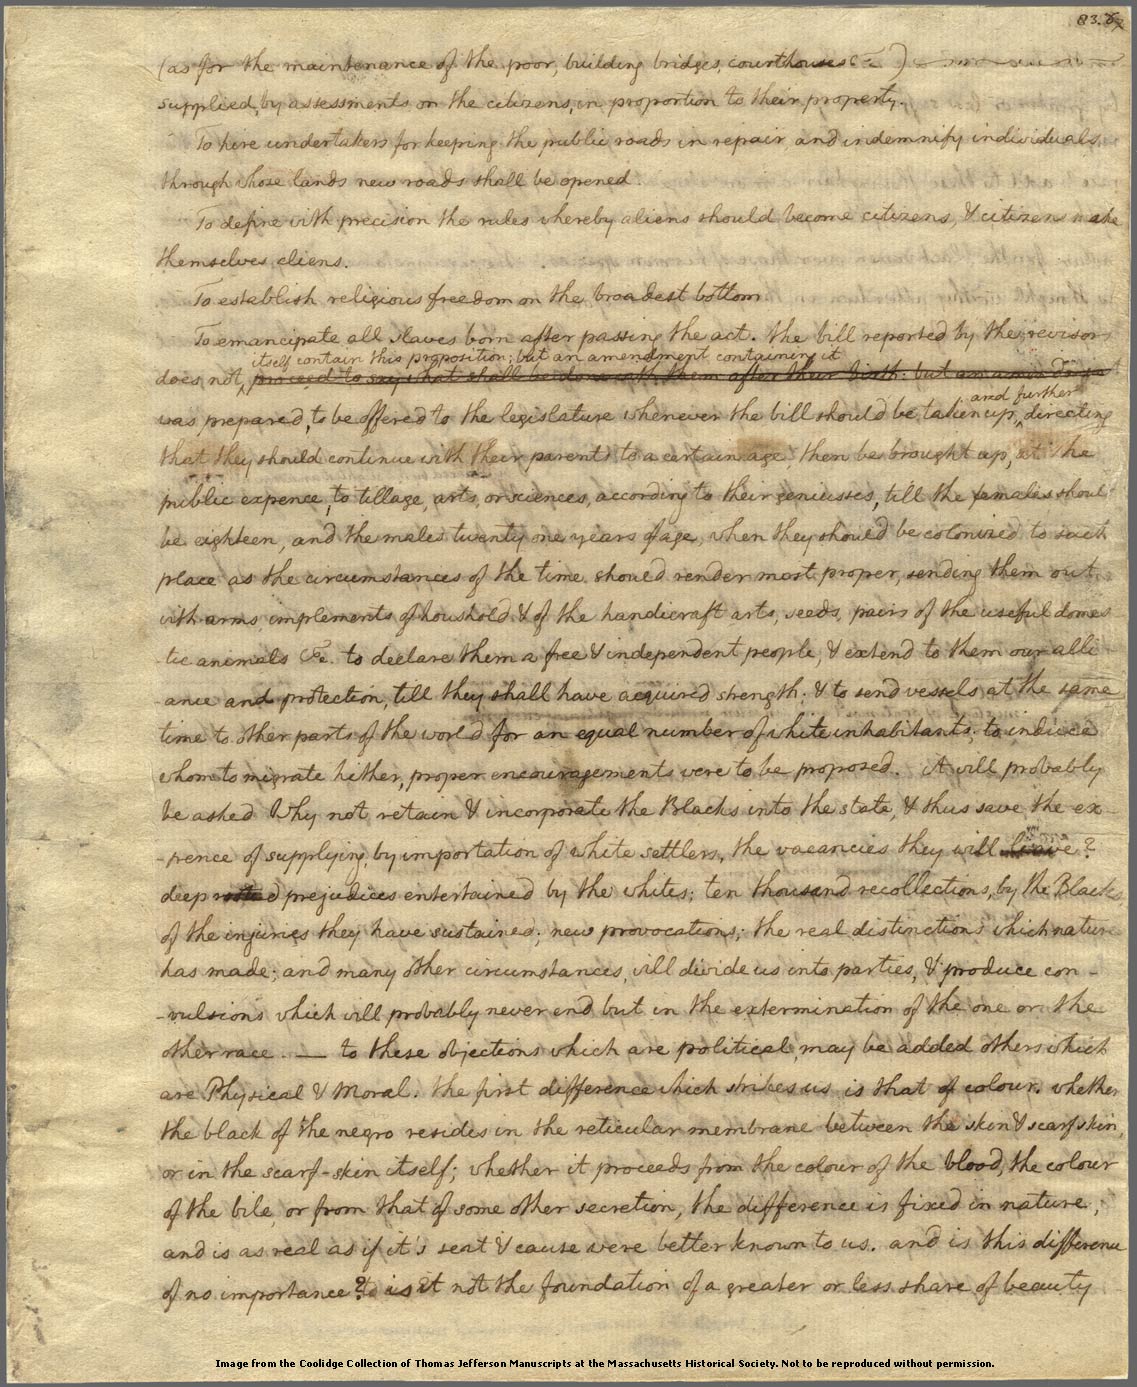 83.
(as for the maintenance of the poor, building bridges, courthouses &c)
supplied, by assessments on the citizens, in proportion to their property.
To hire undertakers for keeping the public roads in repair, and indemnify individuals
through whose lands new roads shall be opened.
To define with precision the rules whereby aliens should become citizens, & citizens make
themselves aliens.
To establish religious freedom on the broadest bottom
To emancipate all slaves born after passing the act. the bill reported by the revisors
itself contain this proposition; but an amendment containing it
does not, proceed to say what shall be done with them after their birth: but an
and further
was prepared, to be offered to the legislature whenever the bill should be taken up, directing
that they should continue with their parents to a certain age, then be brought up, at the
public expence, to tillage, arts, or sciences, according to their geniusses, till the females should
be eighteen, and the males twenty one years of age, when they should be colonized to such
place as the circumstances of the time should render most proper, sending them out
with arms, implements of houshold & of the handicraft arts, seeds, pairs of the useful domes
-tic animals &c. to declare them a free & independent people, & extend to them our alli
-ance and protection, till they shall have acquired strength; & to send vessels at the same
time to other parts of the world for an equal number of white inhabitants; to induce
whom to migrate hither, proper encouragements were to be proposed. It will probably
be asked Why not retain & incorporate the Blacks into the state, & thus save the ex-
-pence of supplying, by importation of white settlers, the vacancies they will leave?
deep rooted prejudices entertained by the whites; ten thousand recollections, by the Blacks,
of the injuries they have sustained; new provocations; the real distinctions which nature
has made; and many other circumstances, will divide us into parties, & produce con-
-vulsions which will probably never end but in the extermination of the one or the
other race. — to these objections which are political, may be added others which
are Physical & Moral. the first difference which strikes us is that of colour. whether
the black of the negro resides in the reticular membrane between the skin & scarf skin,
or in the scarf-skin itself; whether it proceeds from the colour of the blood, the colour
of the bile, or from that of some other secretion, the difference is fixed in nature,
and is as real as if it's seat & cause were better known to us. and is this difference
of no importance? is it not the foundation of a greater or less share of beauty
Image from the Coolidge Collection of Thomas Jefferson Manuscripts at the Massachusetts Historical Society. Not to be reproduced without permission.